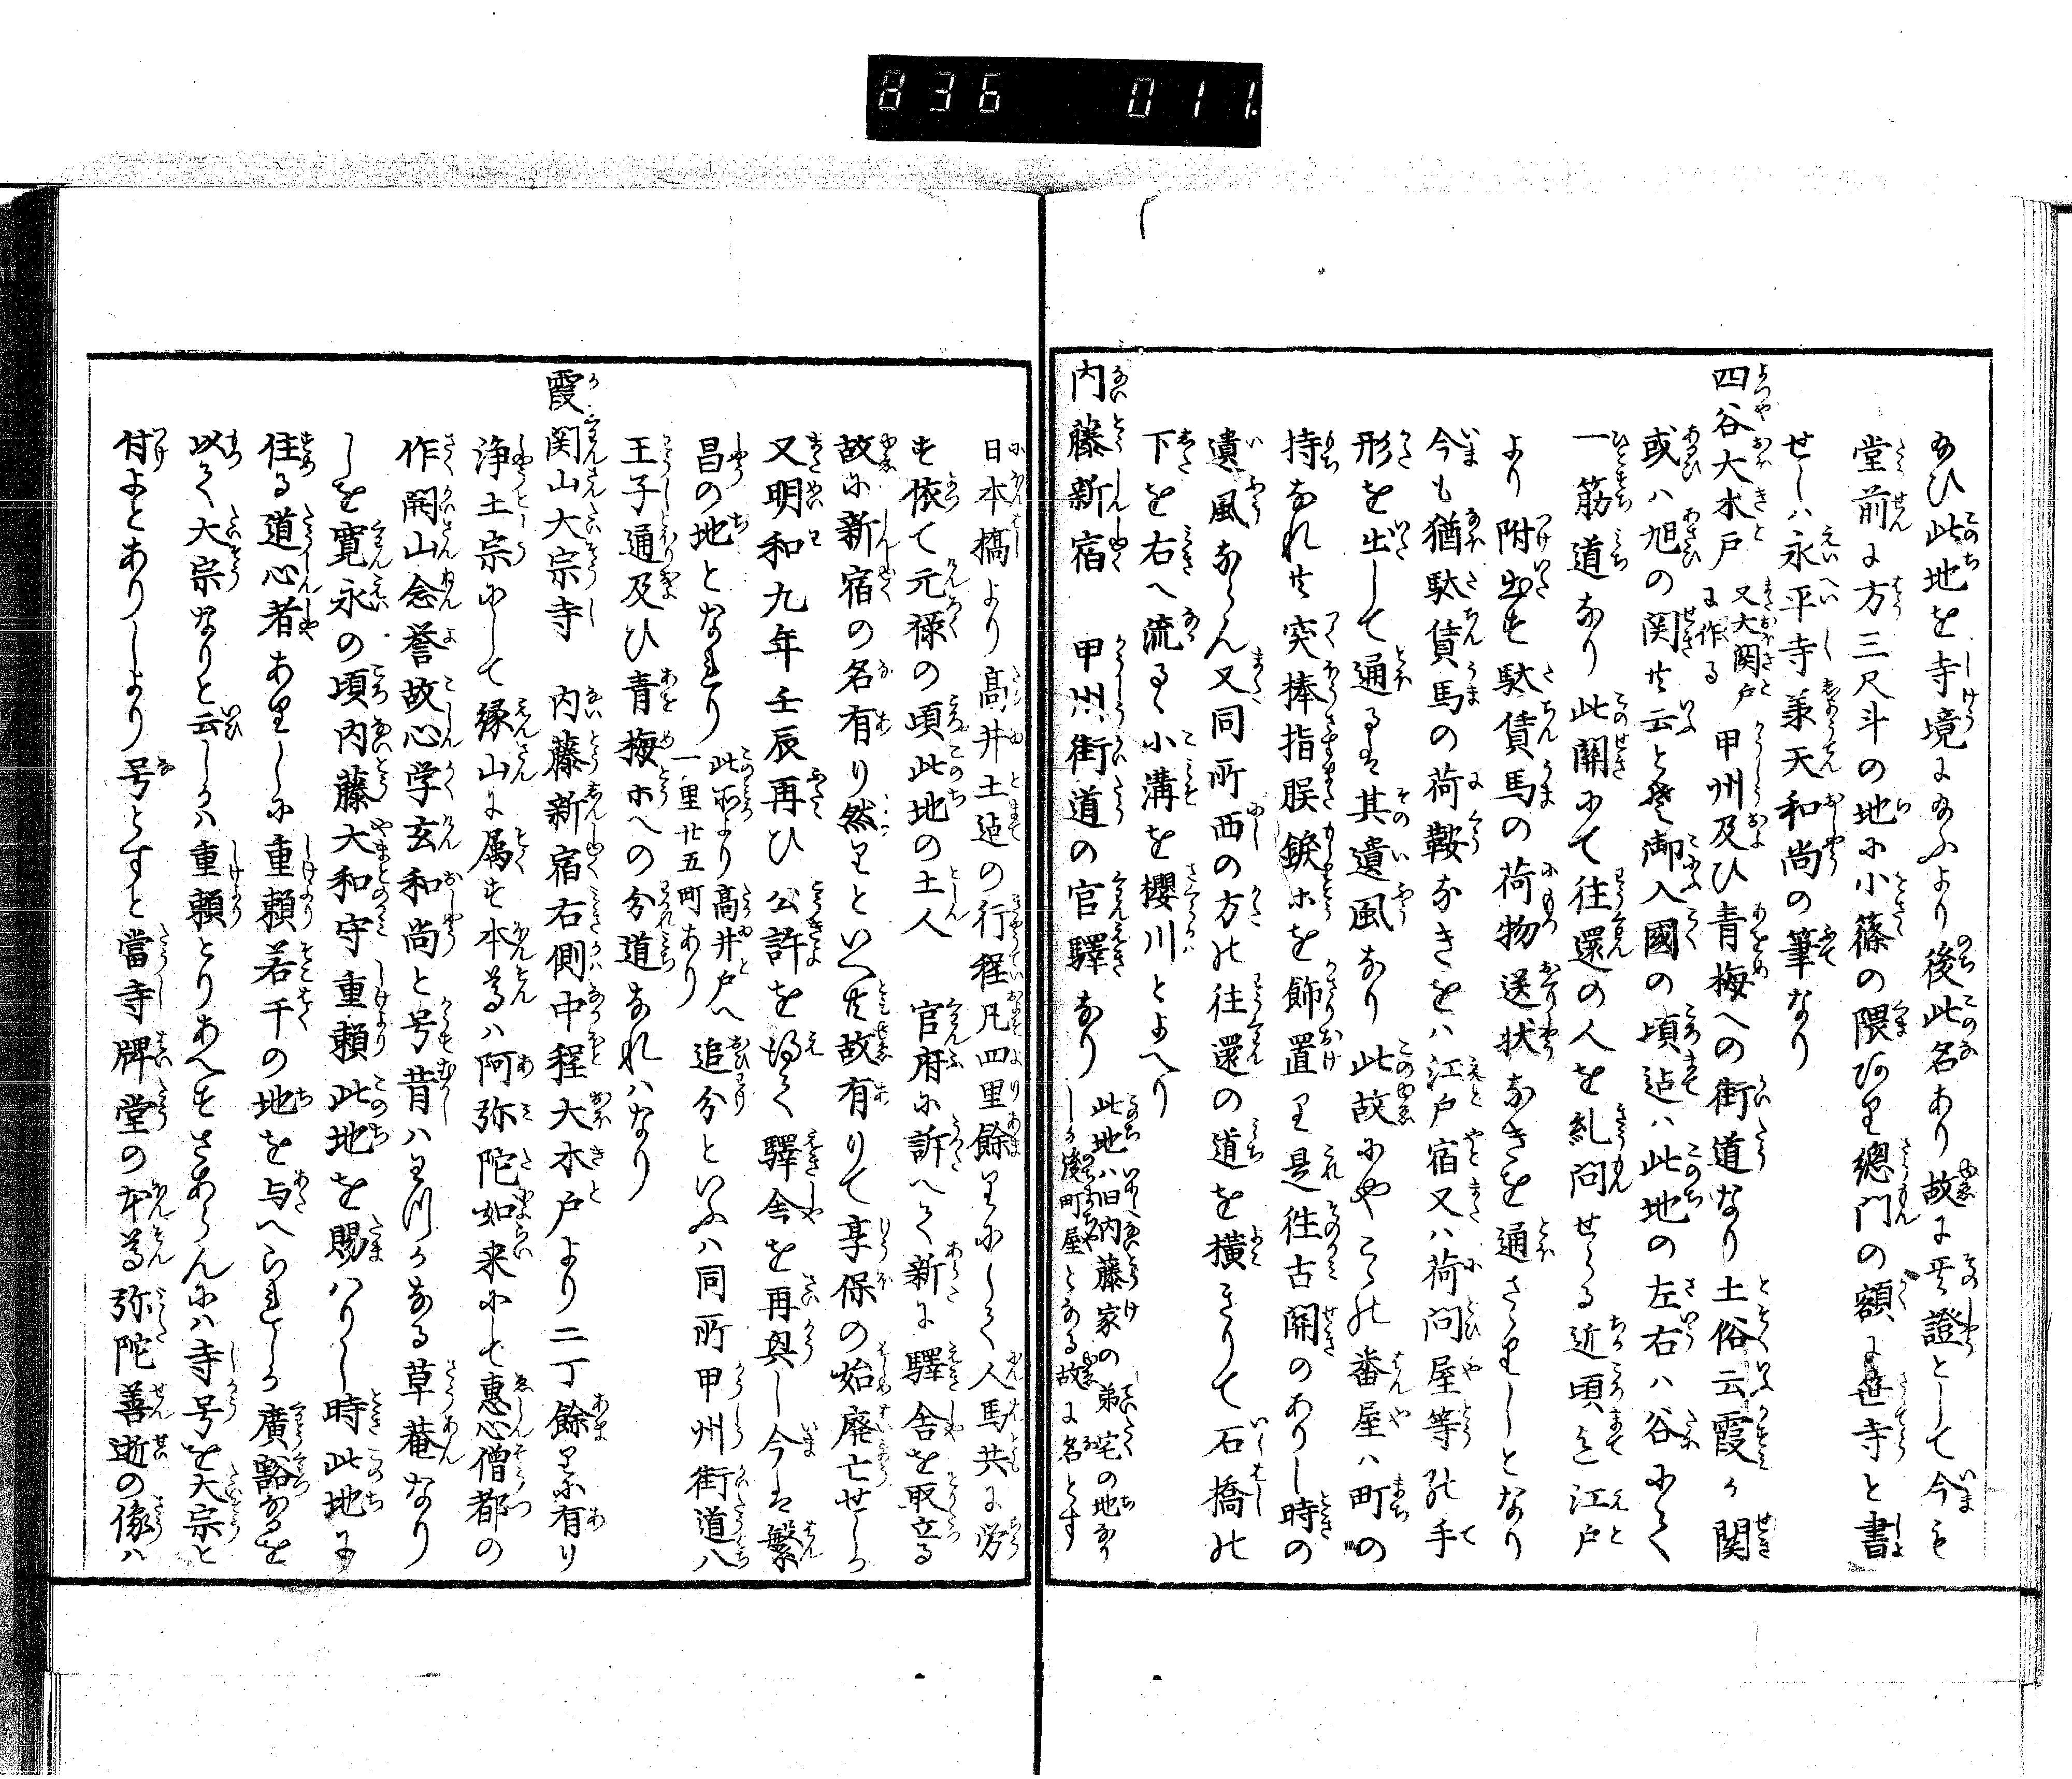 836 011
あひ此地を寺境にあふより後此名あり故に其證として今も
堂前に方三尺斗の地に小篠の隈あり里總門の額に世寺と書
せしハ永平寺兼天和尚の筆なり
四谷大木戸 又大関戸に作る 甲州及ひ青梅への街道なり土俗云霞か関
或ハ旭の関共云と楚御入國の頃迠ハ此地の左右ハ谷にて
一筋道なり此関にて往還の人を糺問せらる近頃迠江戸
より附出す駄賃馬の荷物送状なきを通さゝりしとなり
今も猶駄賃馬の荷鞍なきをハ江戸宿又ハ荷問屋等の手
形を出して通るは其遺風なり此故にやこゝの番屋ハ町の
持なれ共突捧指股錑ホを飾置り是徃古関のありし時の
遺風ならん又同所西の方の往還の道を横きりて石橋の
下を右へ流るゝ小溝を櫻川とよへり
内藤新宿 甲州街道の官驛なり 此地ハ旧内藤家の弟宅の地なりしか後町屋となる故に名とす
日本橋より髙井土迠の行程凡四里餘りにして人馬共に労
す依て元禄の頃此地の土人 官府に訴へて新に驛舎を取立る
故に新宿の名有り然りといへ共故有りて享保の始廃亡せしか
又明和九年壬辰再ひ 公許を得て驛舎を再興し今は繁
昌の地となれり 此所より髙井戸へ一里廿五町あり 追分といふハ同所甲州街道八
王子通及ひ青梅ホへの分道なれハなり
霞関山大宗寺 内藤新宿右側中程大木戸より二丁餘りに有り
浄土宗にして縁山に属す本尊ハ阿弥陀如来にして惠心僧都の
作開山念誉故心学玄和尚と号昔ハわつかなる草菴なり
しを寛永の頃内藤大和守重頼此地を賜ハりし時此地に
住る道心者ありしに重頼若干の地を与へられしか廣豁なるを
以て大宗なりと云しかハ重頼とりあへすさあらんにハ寺号を大宗と
付よとありしより号とすと當寺牌堂の本尊弥陀善逝の像ハ